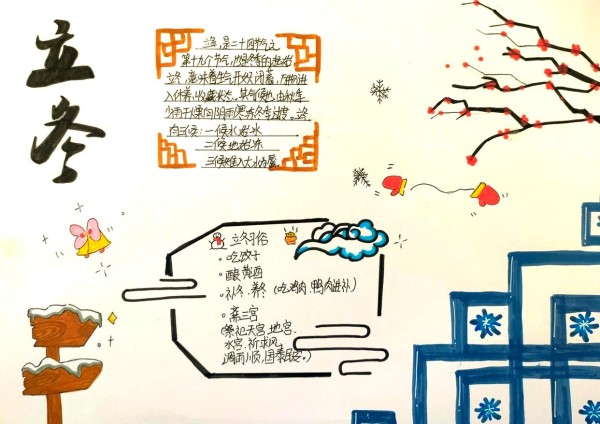 立冬
立冬,是二十四节气之
第十九个节气,也是冬季的起始
立冬,意味着生气开始闭蓄,万物进
入休养,收藏状态。其气候也由秋季
少雨干燥向阴雨寒冻冬季过渡。立冬
三候:一候水始冰
二候地始冻
三候雉入大水为蜃。
立冬习俗
·吃饺子
·酿黄酒
·补冬·养冬(吃鸡肉、鸭肉进补)
·斋三宫
(祭祀天宫、地宫、
水宫,祈求风
调雨顺,国泰民安。)